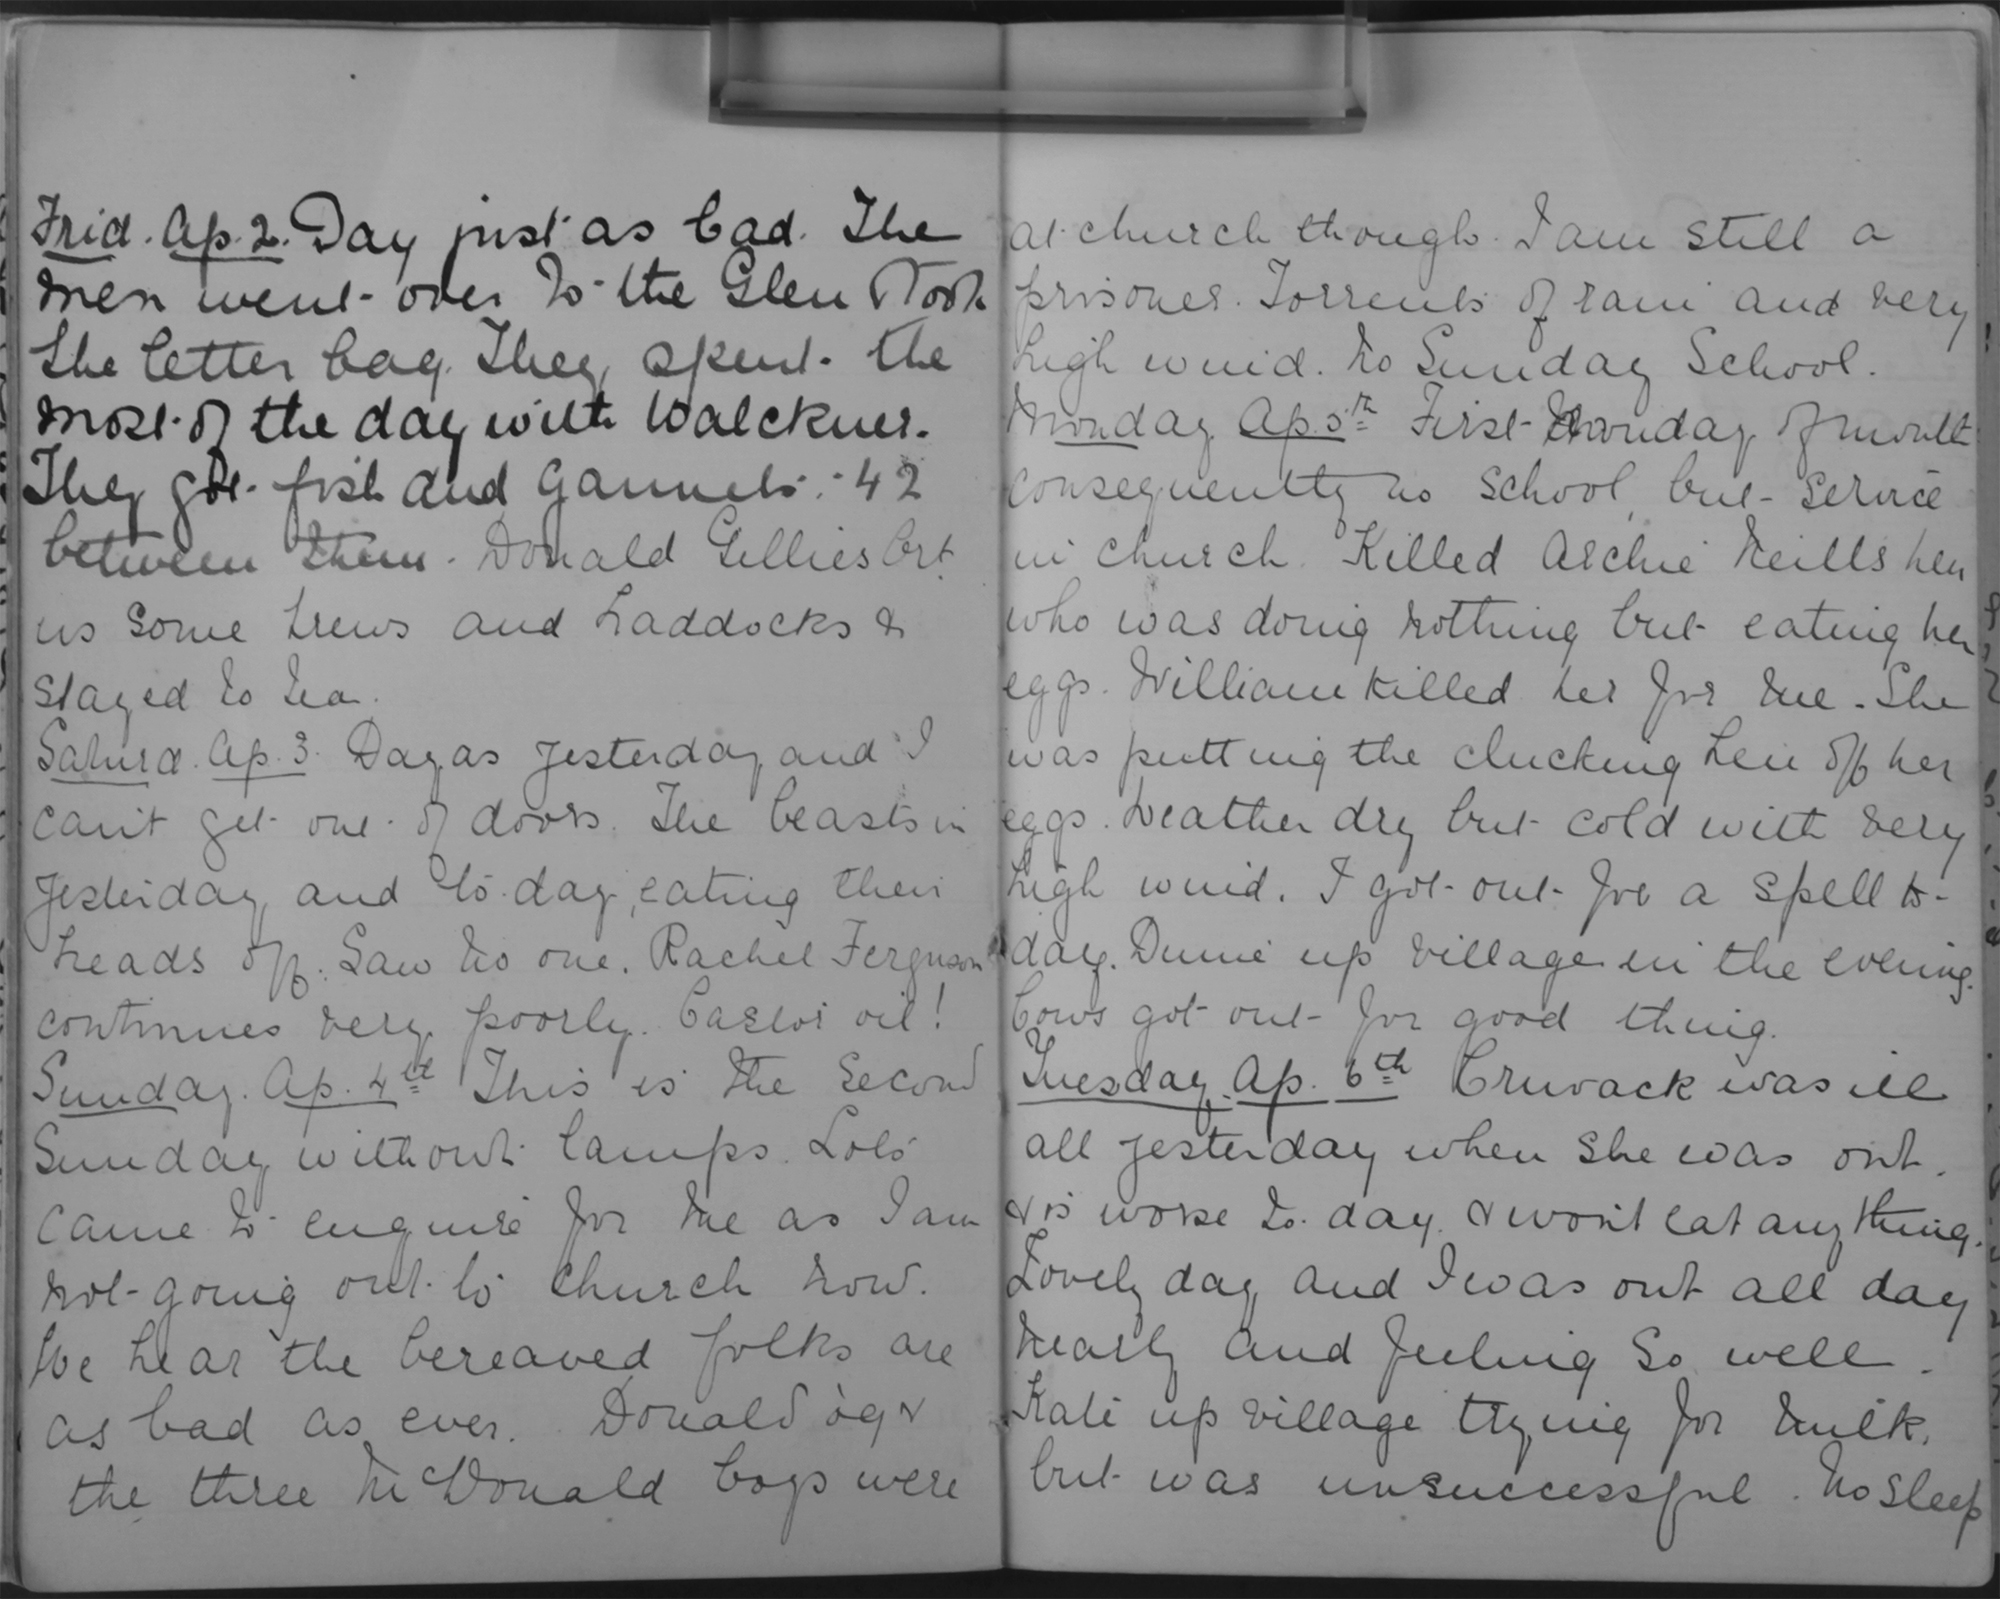 Frid. Ap. 2. Day just as bad. The
men went over to the Glen Took
the letter bag. They spent the
most of the day with Walckner.
They got fish and Gannets. 42
between them. Donald Gillies brt
us some trews and haddocks &
stayed to tea.
Saturd. Ap. 3. Day as yesterday and I
can't get out of doors. The beasts in
yesterday and to-day, eating their
heads off. Saw no one. Rachel Ferguson
continues very poorly. Castor oil!
Sunday. Ap. 4th This is the Second
Sunday without lamps. Lots
came to enquire for me as I am
not going out to church now.
We hear the bereaved folks are
as bad as ever. Donald òg &
the three McDonald boys were
at church though. I am still a
prisoner. Torrents of rain and very
high wind. No Sunday School.
Monday Ap. 5th First Monday of month
consequently no School, but Service
in church. Killed Archie Neills hen
who was doing nothing but eating her
eggs. William killed her for me. She
was putting the clucking hen off her
eggs. Weather dry but cold with very
high wind. I got out for a spell to-
day. Dunie up village in the evening.
Cows got out for good thing.
Tuesday Ap. 6th Cruvack was ill
all yesterday when she was out.
& is worse to-day. & won't eat anything.
Lovely day and I was out all day
nearly and feeling so well.
Kate up village trying for milk.
but was unsuccessful. No sleep